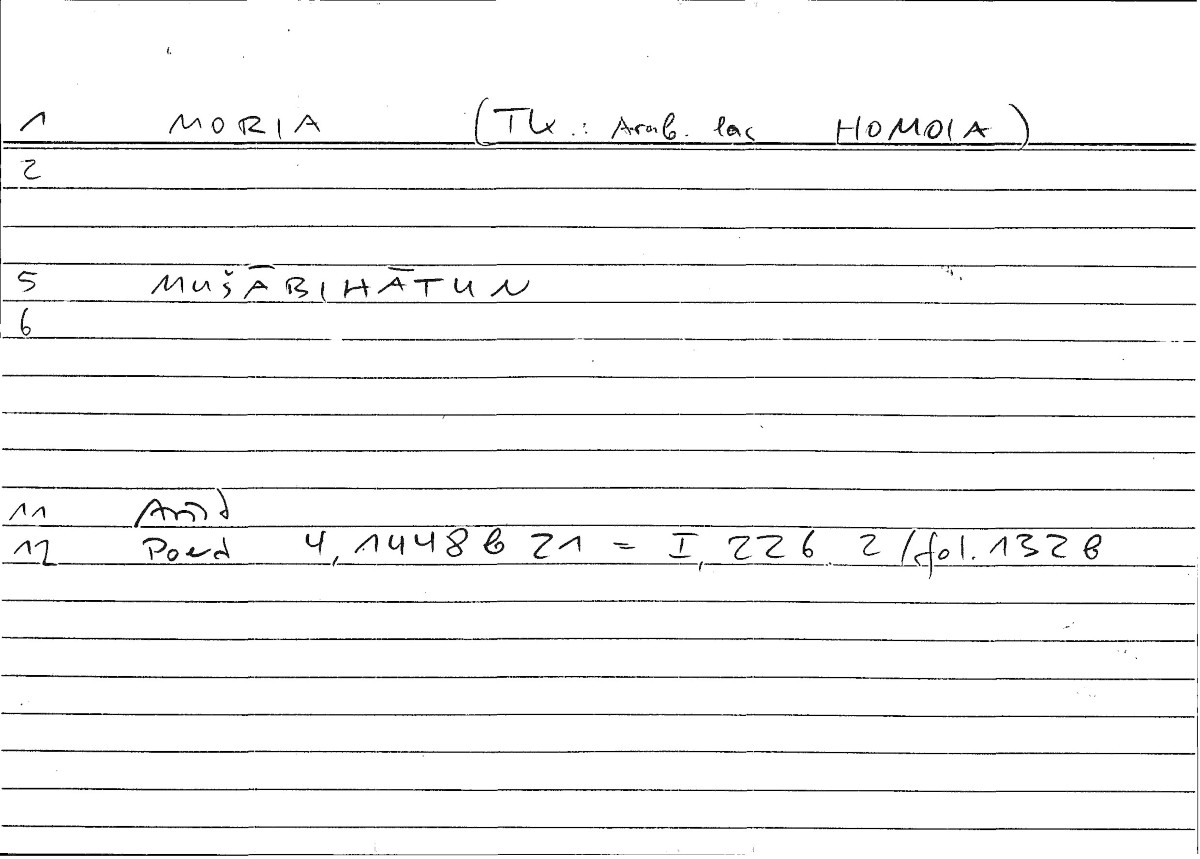 1 MORIA (Tk.: Arab. las HOMOIA)
2
5 MUŠĀBIHĀTUN
6
11
12 Poet 4, 1448 b 21 = I, 226. 2 / fol. 132 b